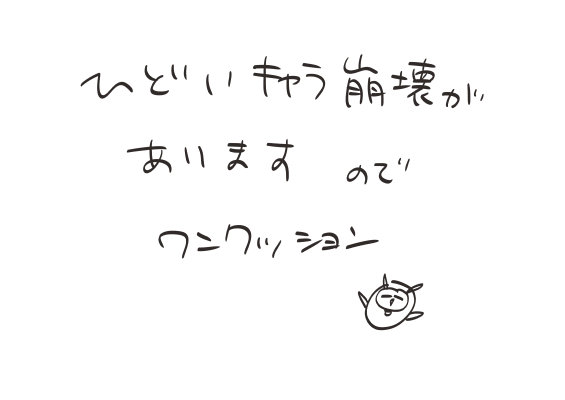 ひどいキャラ崩壊が
ありますので
ワンクッション